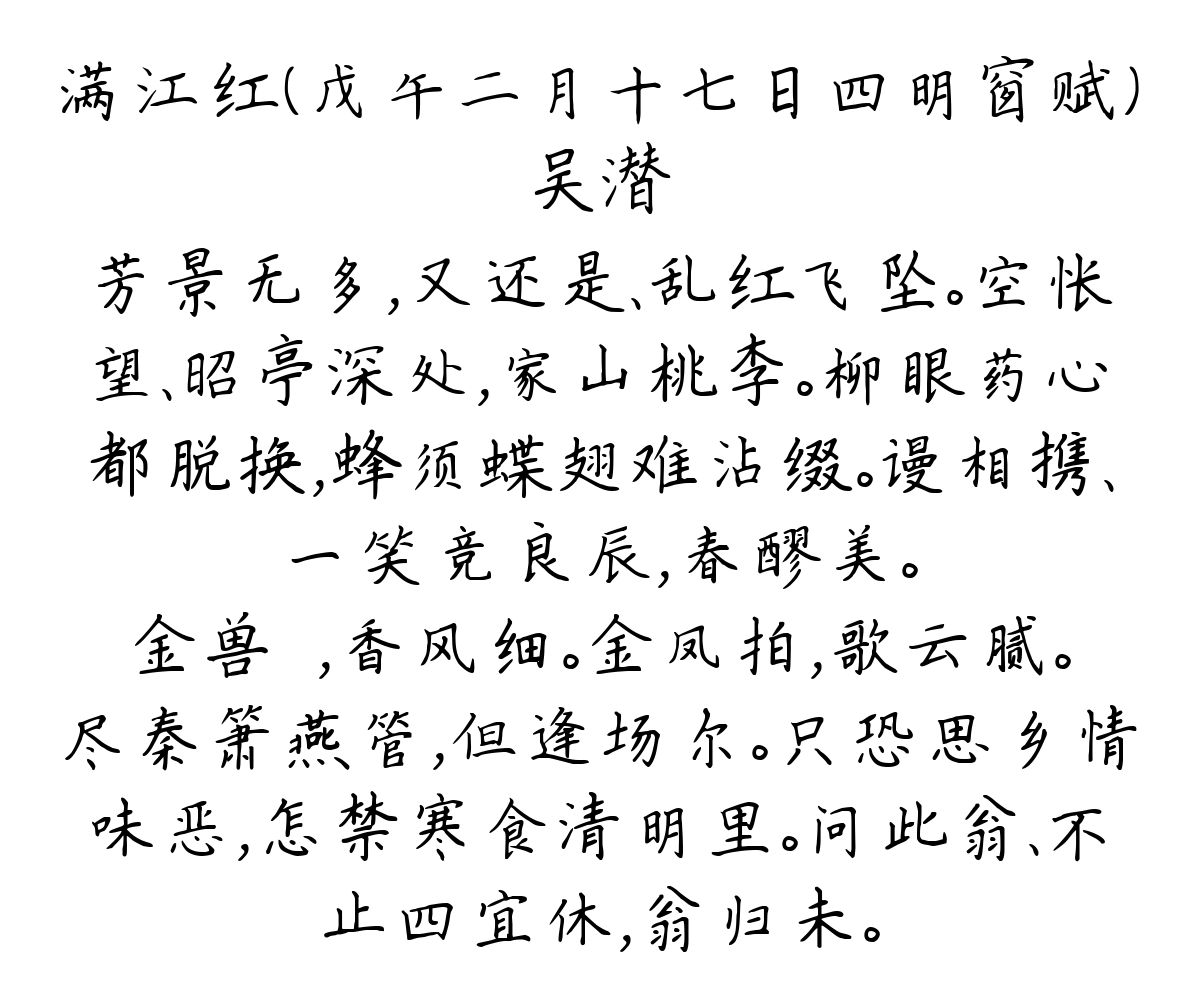 满江红(戊午二月十七日四明窗赋)
吴潜
芳景无多,又还是、乱红飞坠。空怅
望、昭亭深处,家山桃李。柳眼药心
都脱换,蜂须蝶翅难沾缀。谩相携、
一笑竞良辰,春醪美。
金兽 ,香风细。金凤拍,歌云腻。
尽秦箫燕管,但逢场尔。只恐思乡情
味恶,怎禁寒食清明里。问此翁、不
止四宜休,翁归未。